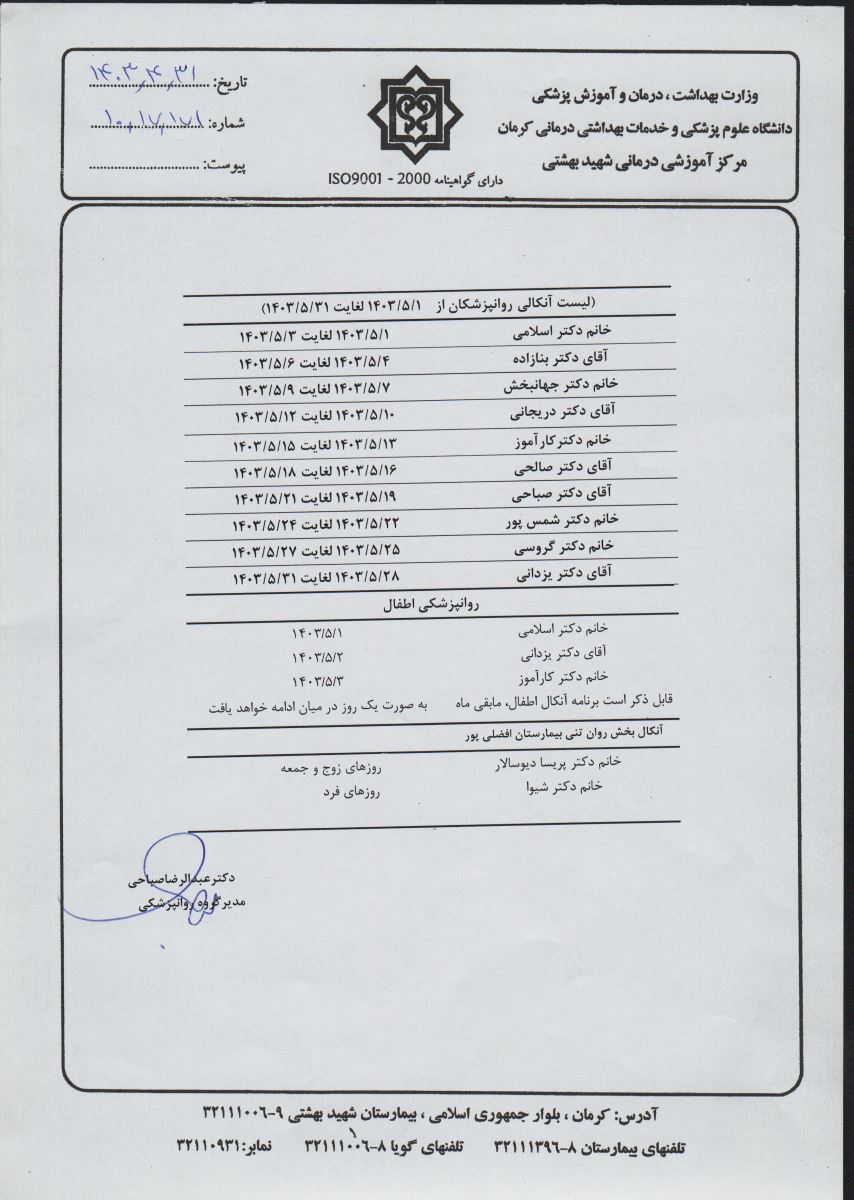 وزارت بهداشت ، درمان و آموزش پزشکی
دانشگاه علوم پزشکی و خدمات بهداشتی درمانی کرمان
مرکز آموزشی درمانی شهید بهشتی
دارای گواهینامه ISO9001 - 2000
تاریخ: ۱۴۰۳٫۴٫۳۱
شماره: ۱۰٫۱۷٫۱۷۱
پیوست:
(لیست آنکالی روانپزشکان از ۱۴۰۳/۵/۱ لغایت ۱۴۰۳/۵/۳۱)
خانم دکتر اسلامی ۱۴۰۳/۵/۱ لغایت ۱۴۰۳/۵/۳
آقای دکتر بنازاده ۱۴۰۳/۵/۴ لغایت ۱۴۰۳/۵/۶
خانم دکتر جهانبخش ۱۴۰۳/۵/۷ لغایت ۱۴۰۳/۵/۹
آقای دکتر دریجانی ۱۴۰۳/۵/۱۰ لغایت ۱۴۰۳/۵/۱۲
خانم دکترکارآموز ۱۴۰۳/۵/۱۳ لغایت ۱۴۰۳/۵/۱۵
آقای دکتر صالحی ۱۴۰۳/۵/۱۶ لغایت ۱۴۰۳/۵/۱۸
آقای دکتر صباحی ۱۴۰۳/۵/۱۹ لغایت ۱۴۰۳/۵/۲۱
خانم دکتر شمس پور ۱۴۰۳/۵/۲۲ لغایت ۱۴۰۳/۵/۲۴
خانم دکتر گروسی ۱۴۰۳/۵/۲۵ لغایت ۱۴۰۳/۵/۲۷
آقای دکتر یزدانی ۱۴۰۳/۵/۲۸ لغایت ۱۴۰۳/۵/۳۱
روانپزشکی اطفال
خانم دکتر اسلامی ۱۴۰۳/۵/۱
آقای دکتر یزدانی ۱۴۰۳/۵/۲
خانم دکتر کارآموز ۱۴۰۳/۵/۳
قابل ذکر است برنامه آنکال اطفال، مابقی ماه به صورت یک روز در میان ادامه خواهد یافت
آنکال بخش روان تنی بیمارستان افضلی پور
خانم دکتر پریسا دیوسالار روزهای زوج و جمعه
خانم دکتر شیوا روزهای فرد
دکترعبدالرضاصباحی
مدیرگروه روانپزشکی
آدرس: کرمان ، بلوار جمهوری اسلامی ، بیمارستان شهید بهشتی ۹-۳۲۱۱۱۰۰۶
تلفنهای بیمارستان ۸-۳۲۱۱۱۳۹۶ تلفنهای گویا ۸-۳۲۱۱۱۰۰۶ نمابر:۳۲۱۱۰۹۳۱